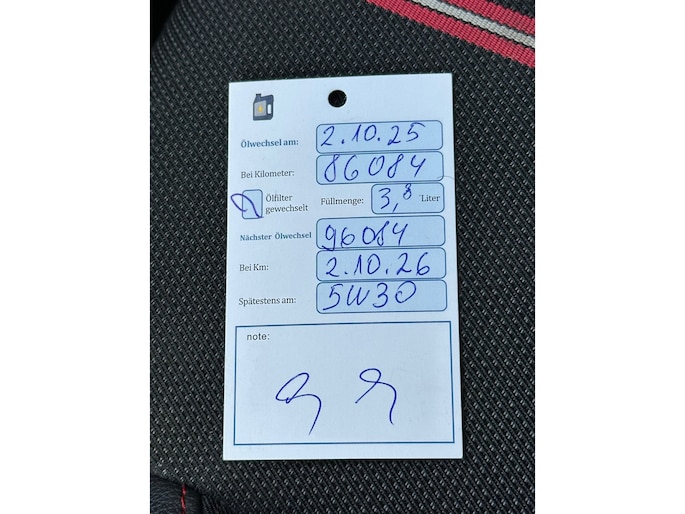 Ölwechsel am: 2.10.25
Bei Kilometer: 86084
Ölfilter gewechselt Füllmenge: 3,8 Liter
Nächster Ölwechsel 96084
Bei Km: 2.10.26
Spätestens am: 5W30
note: